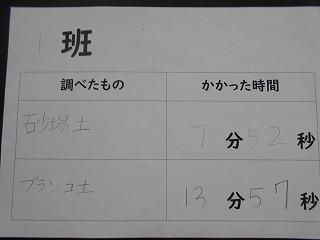 1 班
調べたもの かかった時間
砂場土 7分52秒
ブランコ土 13分57秒